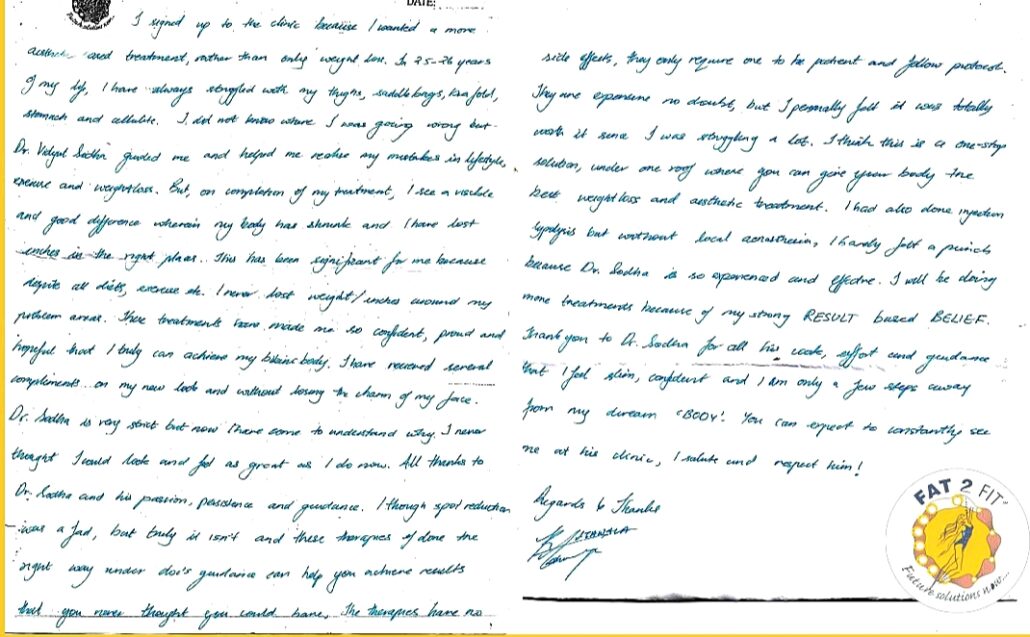 DATE:
Future solutions now...
I signed up to the clinic because I wanted a more
based treatment, rather than only weight loss. In 25-26 years
of my life, I have always struggled with my thighs, saddlebags, bra fold,
stomach and cellulite. I did not know where I was going wrong but
Dr. Sodha guided me and helped me realise my mistakes in lifestyle,
exercise and weightloss. But, on completion of my treatment, I see a visible
and good difference wherein my body has shrunk and I have lost
inches in the right places. This has been significant for me because
despite all diets, exercise etc. I never lost weight/inches around my
problem areas. These treatments have made me so confident, proud and
hopeful that I truly can achieve my body. I have received several
compliments on my new look and without losing the charm of my face.
Dr. Sodha is very strict but now I have come to understand why. I never
thought I could look and feel as great as I do now. All thanks to
Dr. Sodha and his passion, persistence and guidance. I though spot reduction
was a fad, but truly it isn't and these therapies if done the
right way under doc's guidance can help you achieve results
that you never thought you could have. The therapies have no
side effects, they only require one to be patient and follow protocol.
They are expensive no doubt, but I personally felt it was totally
worth it since I was struggling a lot. I think this is a one-stop
solution, under one roof where you can give your body the
best weightloss and aesthetic treatment. I had also done injection
lypolysis but without local anaesthesia, I hardly felt a pinch
because Dr. Sodha is so experienced and effective. I will be doing
more treatments because of my strong RESULT based BELIEF.
Thank you to Dr. Sodha for all his work, effort and guidance
that I feel slim, confident and I am only a few steps away
from my dream 'BODY'. You can expect to constantly see
me at his clinic, I salute and respect him!
Regards & Thanks
FAT 2 FIT
Future solutions now...